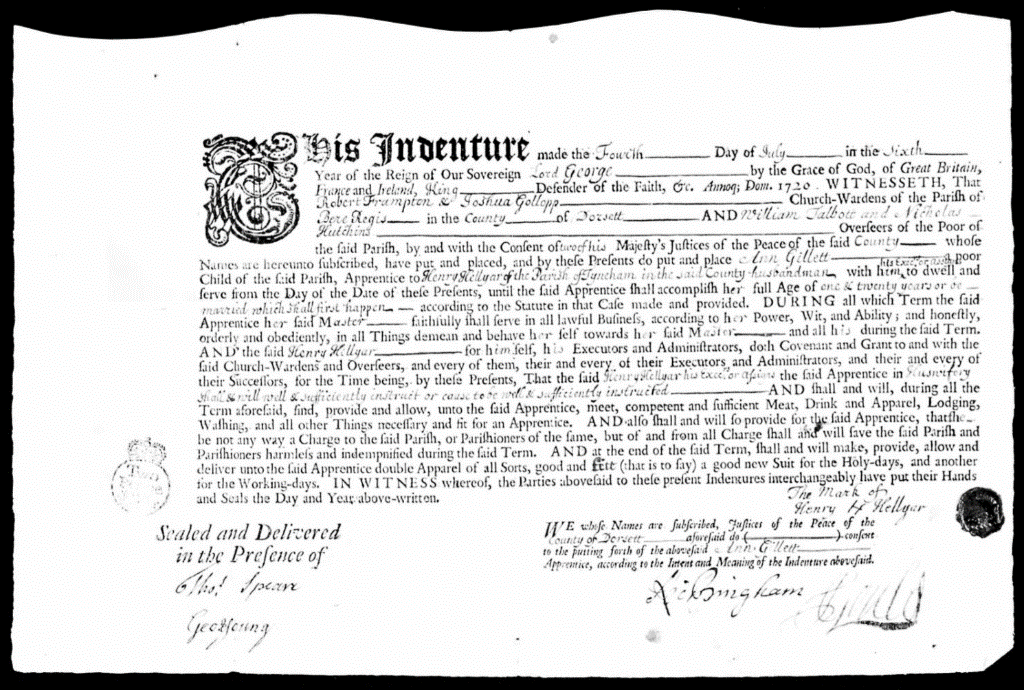 This Indenture made the Fourth Day of July in the Sixth
Year of the Reign of Our Sovereign Lord George by the Grace of God, of Great Britain,
France and Ireland, King Defender of the Faith, &c. Annoq; Dom. 1720. WITNESSETH, That
Robert Frampton & Joshua Gollopp Church-Wardens of the Parish of
Bere Regis in the County of Dorsett AND William Talbott and Nicholas
Hutchins Overseers of the Poor of
the said Parish, by and with the Consent of two of his Majesty's Justices of the Peace of the said County whose
Names are hereunto subscribed, have put and placed, and by these Presents do put and place Ann Gillett poor
his Exec.rs or assis
Child of the said Parish, Apprentice to Henry Hellyar of the Parish of Tyneham in the said County husbandman with him to dwell and
serve from the Day of the Date of these Presents, until the said Apprentice shall accomplish her full Age of one & twenty years or be
married which shall first happen according to the Statute in that Case made and provided. DURING all which Term the said
Apprentice her said Master faithfully shall serve in all lawful Business, according to her Power, Wit, and Ability; and honestly,
orderly and obediently, in all Things demean and behave her self towards her said Master and all his during the said Term.
AND the said Henry Hellyar for himself, his Executors and Administrators, doth Covenant and Grant to and with the
said Church-Wardens and Overseers, and every of them, their and every of their Executors and Administrators, and their and every of
their Successors, for the Time being, by these Presents, That the said Henry Hellyar his Exec.rs or Assigns the said Apprentice in Huswifery
shall & will well & sufficiently instruct or cause to be well & sufficiently instructed AND shall and will, during all the
Term aforesaid, find, provide and allow, unto the said Apprentice, meet, competent and sufficient Meat, Drink and Apparel, Lodging,
Washing, and all other Things necessary and fit for an Apprentice. AND also shall and will so provide for the said Apprentice, that she
be not any way a Charge to the said Parish, or Parishioners of the same, but of and from all Charge shall and will save the said Parish and
Parishioners harmless and indempnified during the said Term. AND at the end of the said Term, shall and will make, provide, allow and
deliver unto the said Apprentice double Apparel of all Sorts, good and (that is to say) a good new Suit for the Holy-days, and another
for the Working-days. IN WITNESS whereof, the Parties abovesaid to these present Indentures interchangeably have put their Hands
and Seals the Day and Year above-written.
The Mark of
Henry H Hellyar
Sealed and Delivered
in the Presence of
Tho.s Speare
Geo Young
WE whose Names are subscribed, Justices of the Peace of the
County of Dorsett aforesaid do ( ) consent
to the putting forth of the abovesaid Ann Gillett
Apprentice, according to the Intent and Meaning of the Indenture abovesaid.
Ric Bingham